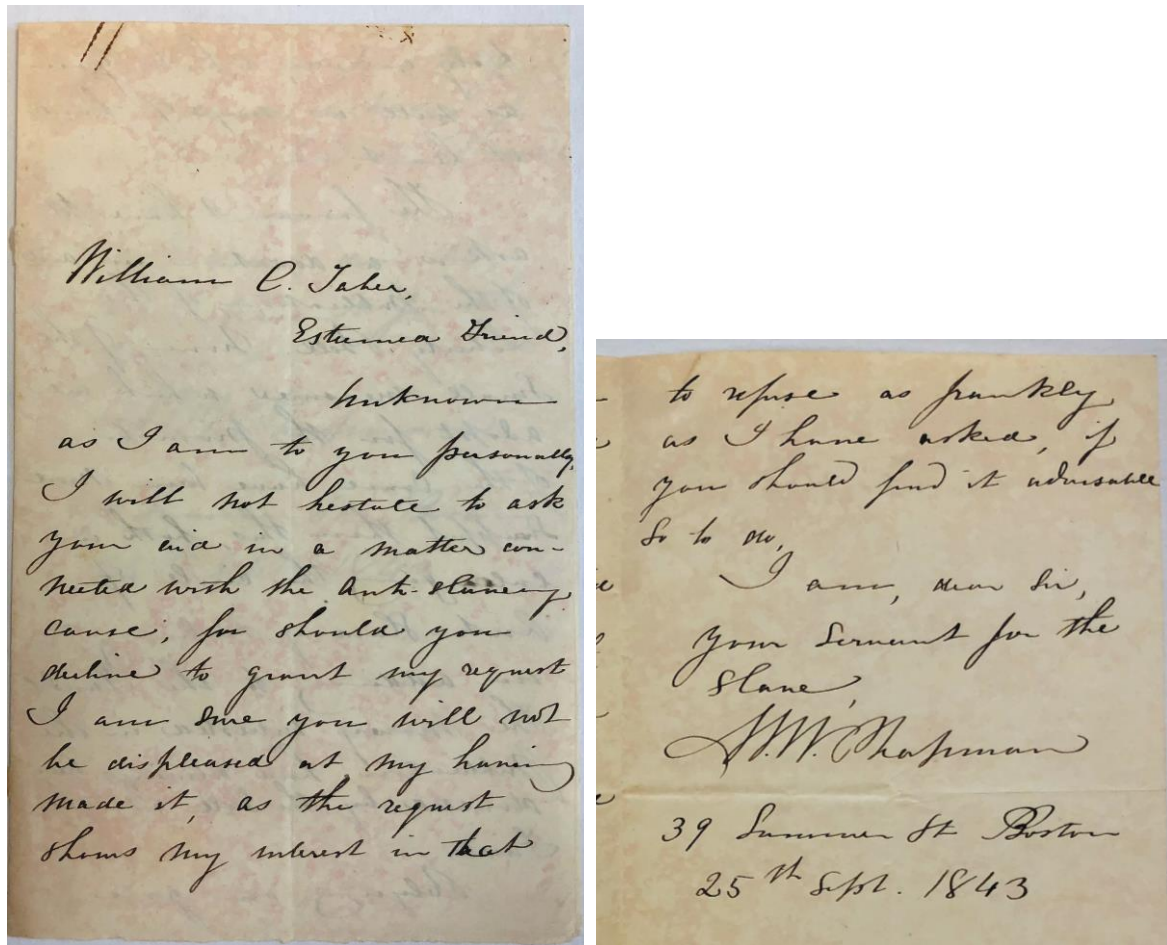 William C. Taber,
Esteemed Friend,
Unknown
as I am to you personally,
I will not hesitate to ask
your aid in a matter con-
nected with the Anti-slavery
cause, for should you
decline to grant my request
I am sure you will not
be displeased at my having
made it, as the request
shows my interest in that
to refuse as frankly
as I have asked, if
you should find it advisable
so to do,
I am, dear Sir,
Your Servant for the
Slave,
Chapman
39 Summer St Boston
25th Sept. 1843